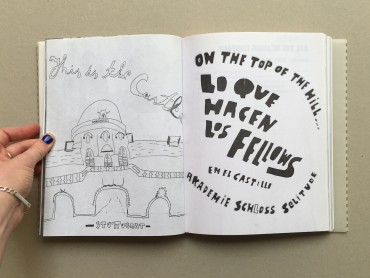 This is the
Castle
STUTTGART
ON THE TOP OF THE HILL...
LO QUE
HACEN
LOS FELLOWS
EN EL CASTILLO
AKADEMIE SCHLOSS SOLITUDE